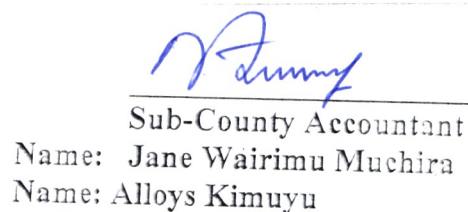 Sub-County Accountant
Name: Jane Wairimu Muchira
Name: Alloys Kimuyu